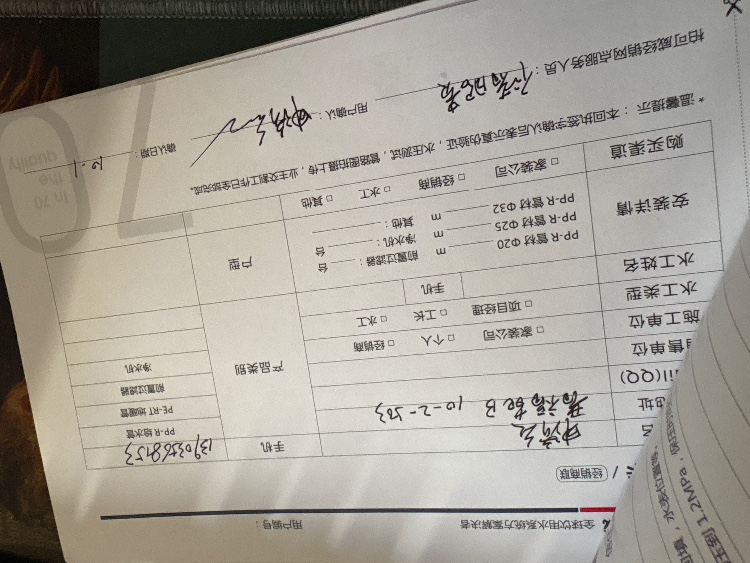 全球饮用水系统方案解决者 用户编号：
经销商联
名 手机 13903568153
地址 10-2-503
(QQ)
销售单位 □ 家装公司 □ 个人 □ 经销商
施工单位
水工类型 □ 项目经理 □ 工长 □ 水工
水工姓名 手机
产品类别
PP-R 给水管
PE-RT 地暖管
前置过滤器
净水机
安装详情
PP-R 管材 Φ20 m 前置过滤器： 台
PP-R 管材 Φ25 m 净水机： 台
PP-R 管材 Φ32 m 其他：
户型
购买渠道 □ 家装公司 □ 经销商 □ 水工 □ 其他
* 温馨提示：本回执签字确认后表示真伪验证，水压测试，管路图拍摄上传，业主交割工作已全部完成。
柏可威经销网点服务人员： 用户确认： 确认日期： 10.1
In 70
the
quality
70
压到 1.2MPa，